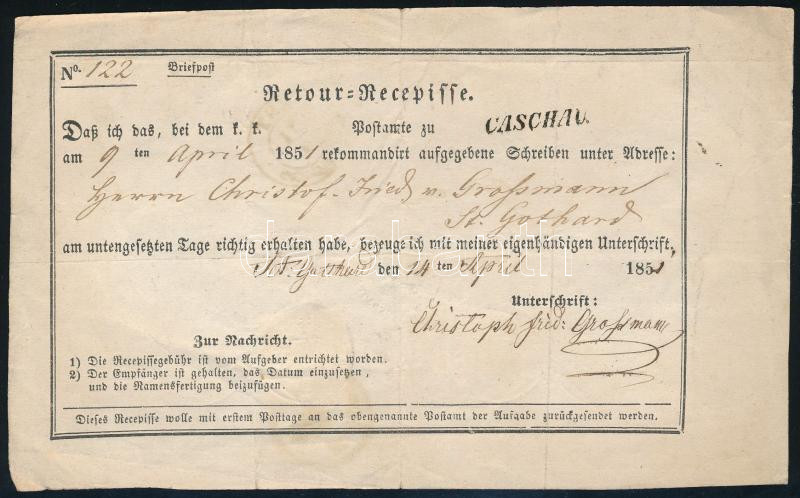 No. 122 Briefpost
Retour=Recepisse.
Daß ich das, bei dem k. k. Postamte zu CASCHAU.
am 9 ten April 1851 rekommandirt aufgegebene Schreiben unter Adresse:
Herrn Christof. Fried. v. Großmann
St. Gothard
am untengesetzten Tage richtig erhalten habe, bezeuge ich mit meiner eigenhändigen Unterschrift,
St. Gotthard den 14 ten April 1851
Unterschrift:
Christoph fried: Großmann
Zur Nachricht.
1) Die Recepissegebühr ist vom Aufgeber entrichtet worden.
2) Der Empfänger ist gehalten, das Datum einzusetzen,
und die Namensfertigung beizufügen.
Dieses Recepisse wolle mit erstem Posttage an das obengenannte Postamt der Aufgabe zurückgesendet werden.